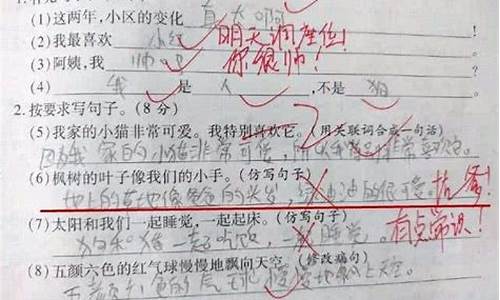 (1)这两年,小区的变化 真大啊
(2)我最喜欢 小红 明天调座位!
(3)阿姨,我 帅吧 你很帅!
(4) 我 是 人 ,不是 狗
2.按要求写句子。(8分)
(5)我家的小猫非常可爱。我特别喜欢它。(用关联词合成一句话)
因为我家的小猫非常可爱,所以我非常喜欢它。
(6)枫树的叶子像我们的小手。(仿写句子)
地上的草地像爸爸的头发,绿油油的很可爱。抗爹!
(7)太阳和我们一起睡觉,一起起床。(仿写句子)
狗和猪一起吃饭,一起睡觉。有点常识!
(8)五颜六色的红气球慢慢地飘向天空。(修改病句)
五颜六色的气球慢慢地飘上天空。